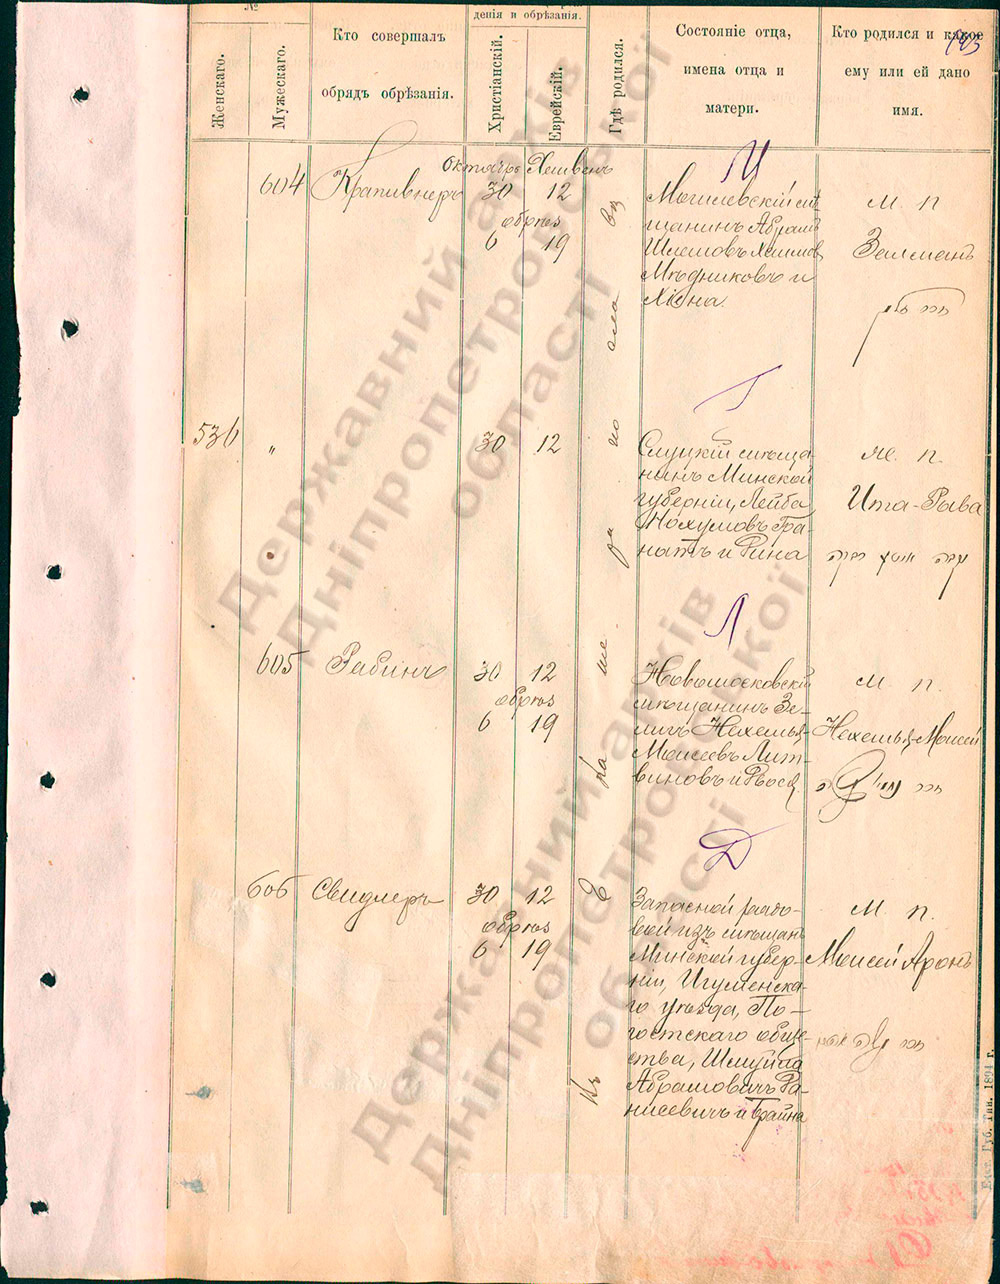 №
Женскаго.
Мужескаго.
Кто совершалъ
обрядъ обрѣзанія.
денія и обрѣзанія.
Христіанскій.
Еврейскій.
Гдѣ родился.
Состояніе отца,
имена отца и
матери.
Кто родился и какое
ему или ей дано
имя.
Октябрь Хешвенъ
604 Крапивнеръ 30 12
обрѣз
6 19
Могилевскій мѣ-
щанинъ Абрамъ
Шлемовъ Хаимов
Мѣдниковъ и
м. п.
Залманъ
Г
536 " 30 12
Слуцкій мѣща-
нинъ Минской
губерніи, Лейба
Нохумовъ Гра-
натъ и Рина
же. п.
Ита-Рыва
Л
605 Рабинъ 30 12
обрѣз
6 19
Новомосковскій
мѣщанинъ Зе-
ликъ Нехемья-
Моисеевъ Лит-
виновъ и
м. п.
Нехемья-Моисей
Д
606 Свидлеръ 30 12
обрѣз
6 19
Въ
Запасной рядо-
вой изъ мѣщанъ
Минской губер-
ніи, Игуменска-
го уѣзда, По-
гостскаго обще-
ства, Шмуйла
Абрамовичъ
и Брайна
м. п.
Моисей Аронъ
Екат. Губ. Тип. 1894 г.
Державний архів
Дніпропетровської
області
Державний архів
Дніпропетровської
області